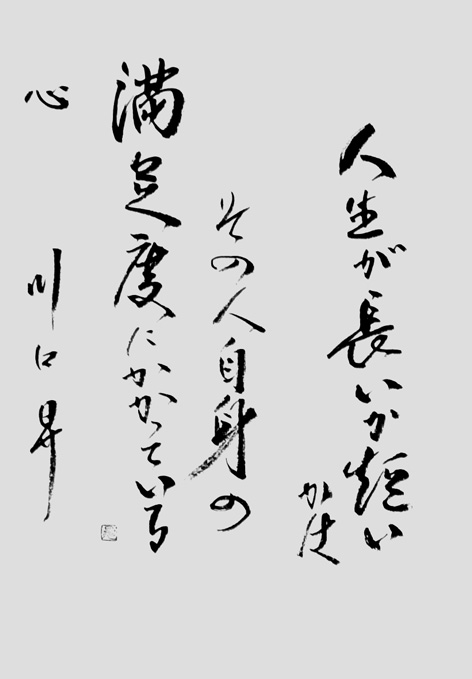 人生が長いか短い
かは
その人自身の
満足度にかかっている
心 川口昇